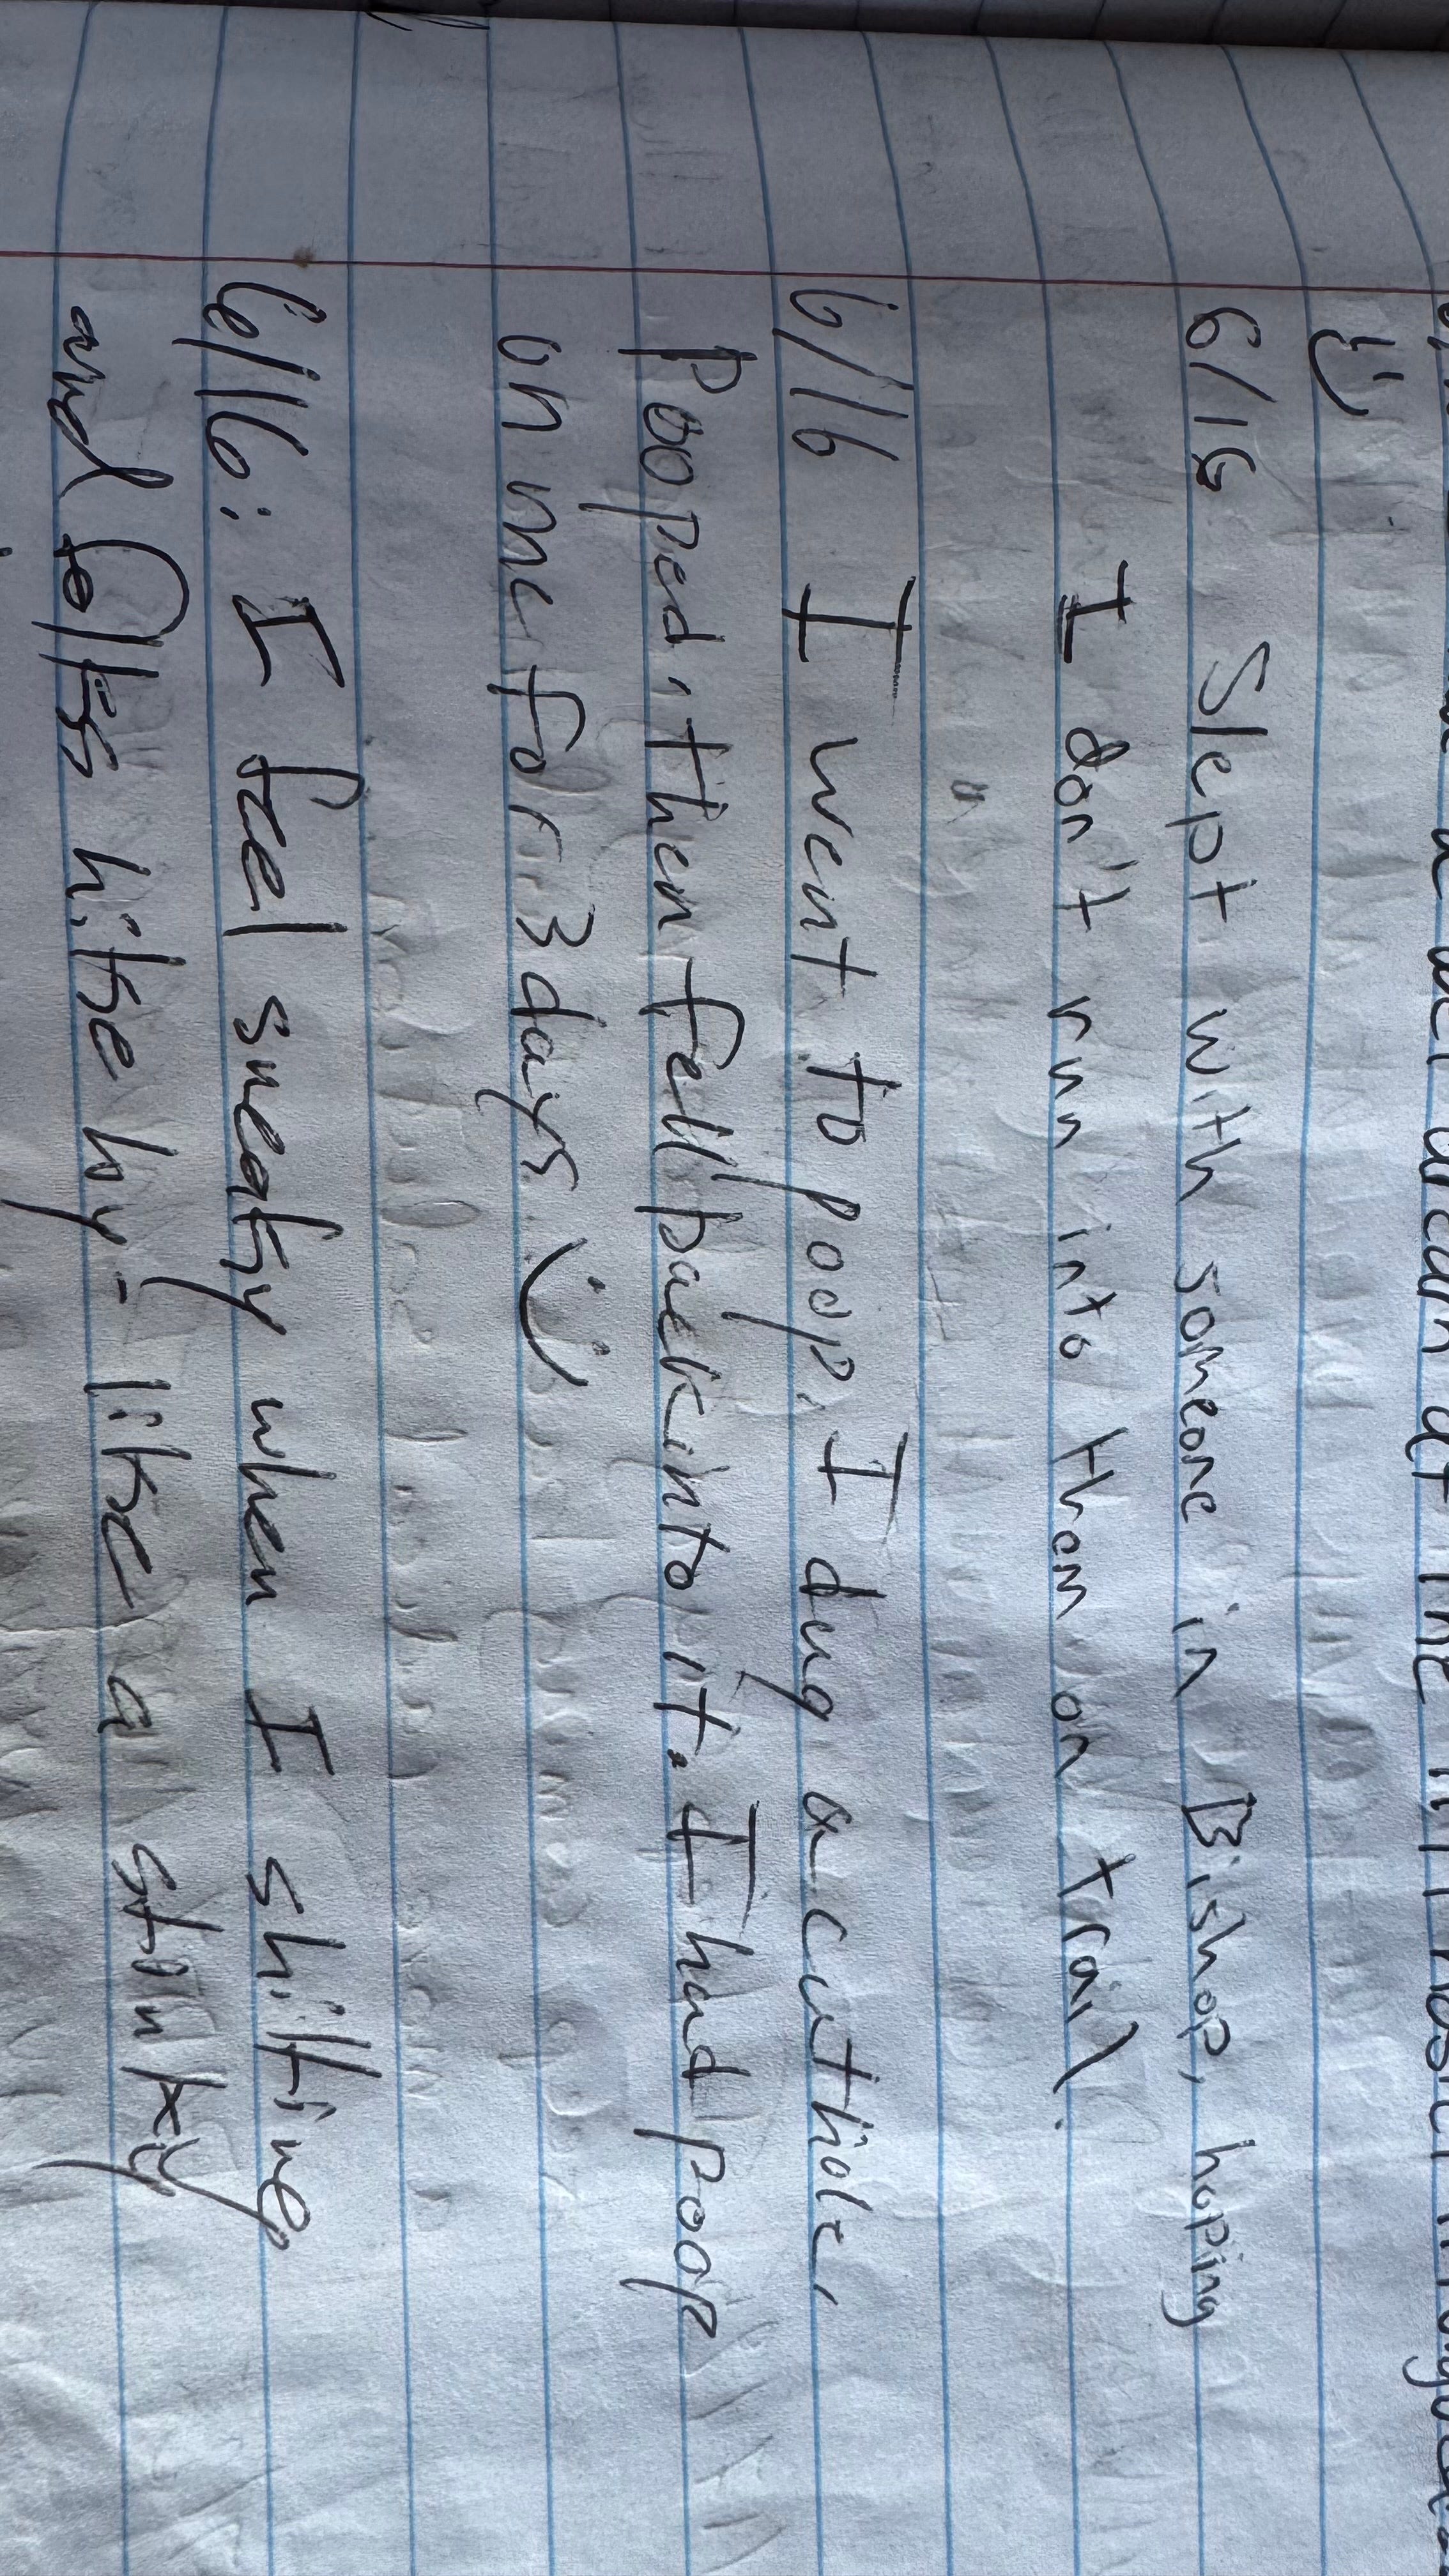 :)
6/16 Slept with someone in Bishop, hoping
I don't run into them on trail.
6/16 I went to poop, I dug a cathole,
Pooped, then fell back into it. I had poop
on me for 3 days :)
6/16: I feel sneaky when I shilting
and folks hike by - like a stinky